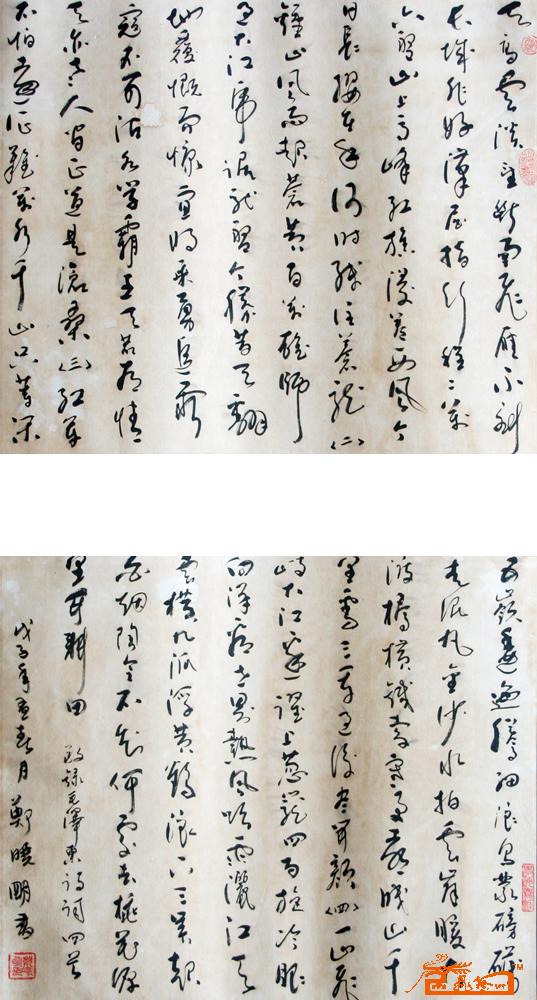 天高雲淡望斷南飛雁不到
長城非好漢屈指行程二萬
六盤山上高峰紅旗漫卷西風今
日長纓在手何時縛住蒼龍(二)
鍾山風雨起蒼黃百萬雄師
過大江虎踞龍盤今勝昔天翻
地覆慨而慷宜將乘勇追窮
寇不可沽名學霸王天若有情
天亦老人間正道是滄桑(三)紅軍
不怕遠征難萬水千山只等閑
五嶺逶迤騰細浪烏蒙磅礴
走泥丸金沙水拍雲崖暖大
渡橋橫鐵索寒更喜岷山千
里雪三軍過後盡開顏(四)一山飛
峙大江邊躍上蔥蘢四百旋冷眼
向洋看世界熱風吹雨灑江天
雲橫九派浮黃鶴浪下三吳起
白煙陶令不知何處去桃花源
里可耕田 敬錄毛澤東詩詞四首
戊子年孟春月 鄭曉明書